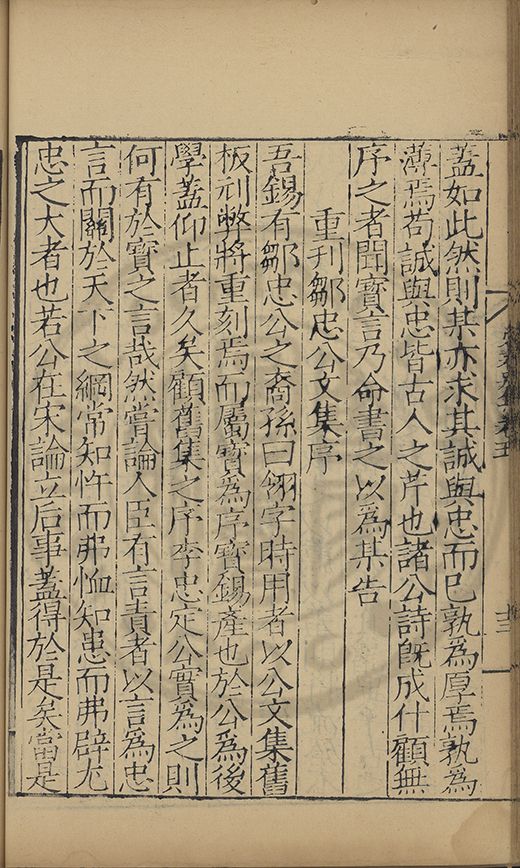 蓋如此然則某亦求其誠與忠而巳孰為厚焉孰為
薄焉苟誠與忠皆古人之芹也諸公詩旣成什顧無
序之者聞寳言乃命書之以為某告
重刋鄒忠公文集序
吾錫有鄒忠公之裔孫曰翎字時用者以公文集舊
板刓弊將重刻焉而屬寳為序寳錫產也於公為後
學蓋仰止者久矣顧舊集之序李忠定公實為之則
何有於寳之言哉然嘗論人臣有言責者以言為忠
言而關於天下之綱常知忤而弗恤知患而弗辟尤
忠之大者也若公在宋論立后事蓋得於是矣當是